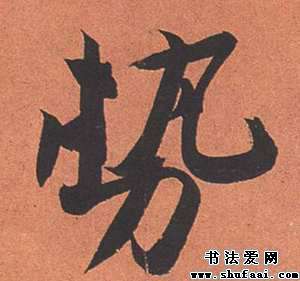 势
书法爱网
www.shufaai.com